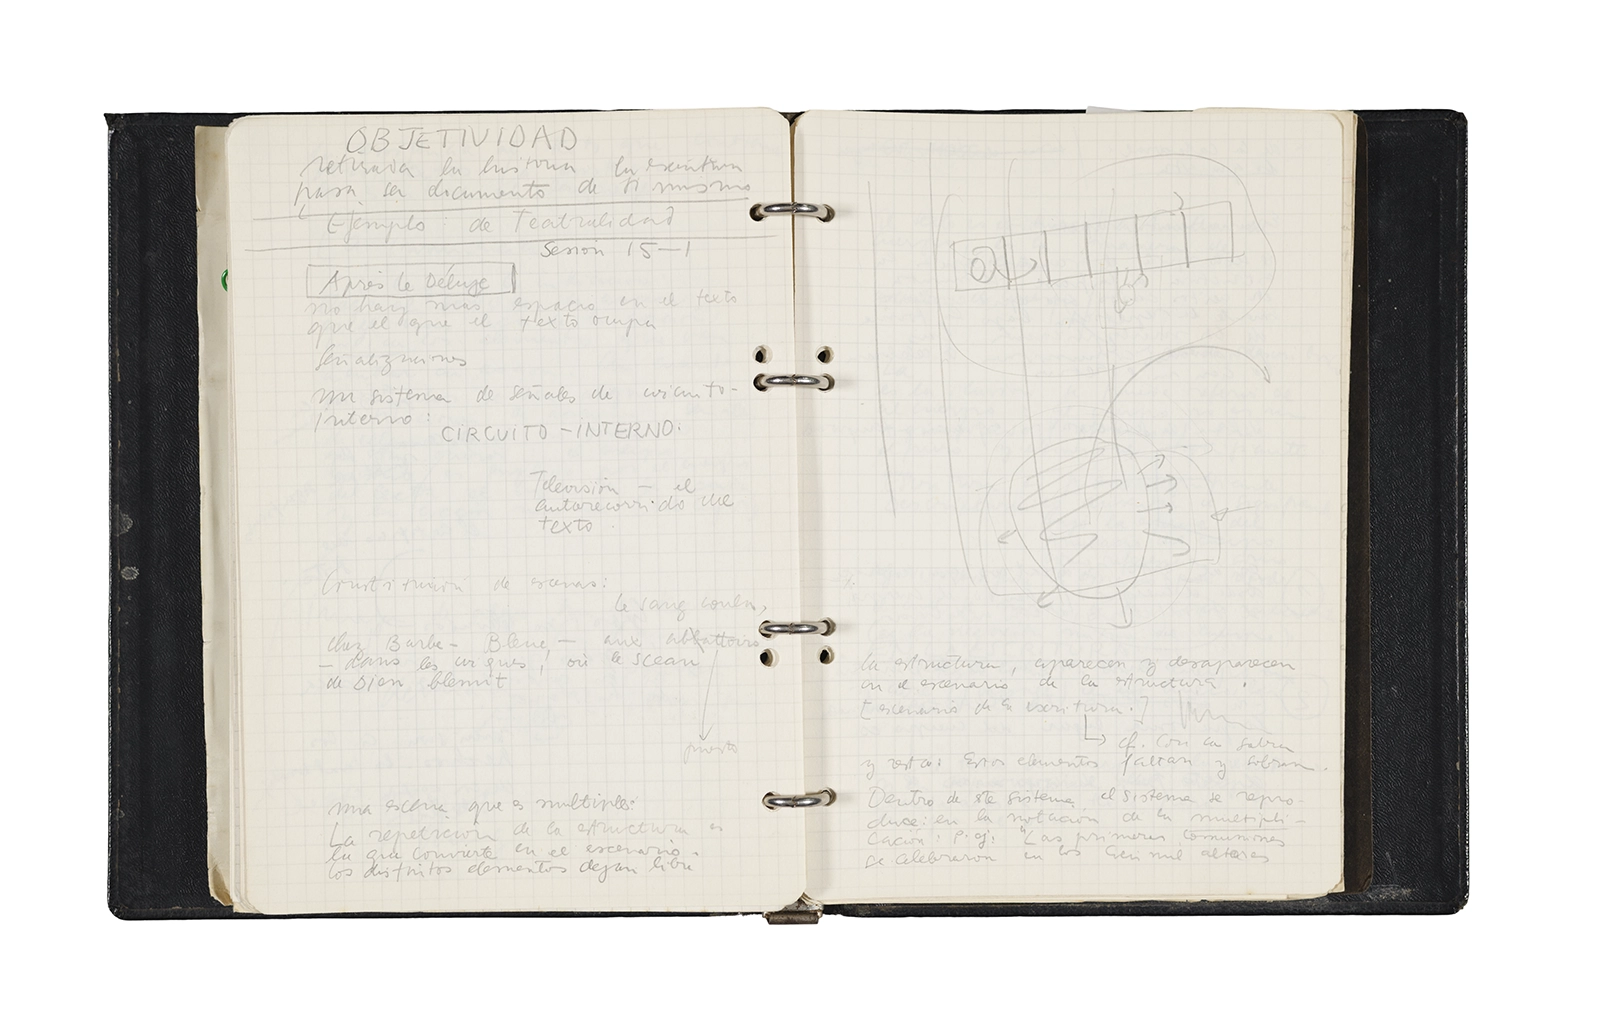 OBJETIVIDAD
retirada la historia la escritura
pasa ser documento de si mismo
Ejemplo: de Teatralidad
Sesión 15-1
Après le Déluge
no hay mas espacio en el texto
que el que el texto ocupa
Señalizaciones
un sistema de señales de circuito-
interno:
CIRCUITO-INTERNO.
Televisión – el
autorecorrido del
texto.
Constitución de escenas:
le sang coula,
chez Barbe-Bleue, – aux abbattoirs
– dans les cirques, où le sceau
de Dieu blemit
puesto
una escena que es multiple:
La repetición de la estructura es
la que convierte en el escenario.
los distintos elementos dejan libre
la estructura, aparecen y desaparecen
en el escenario de la estructura.
[escenario de la escritura.]
cf. Con la
y resta: Estos elementos faltan y sobran.
Dentro de este sistema, el sistema se repro-
duce: en la notacion de la multipli-
cación: p.ej: "Las primeras comuniones
se celebraron en los cien mil altares